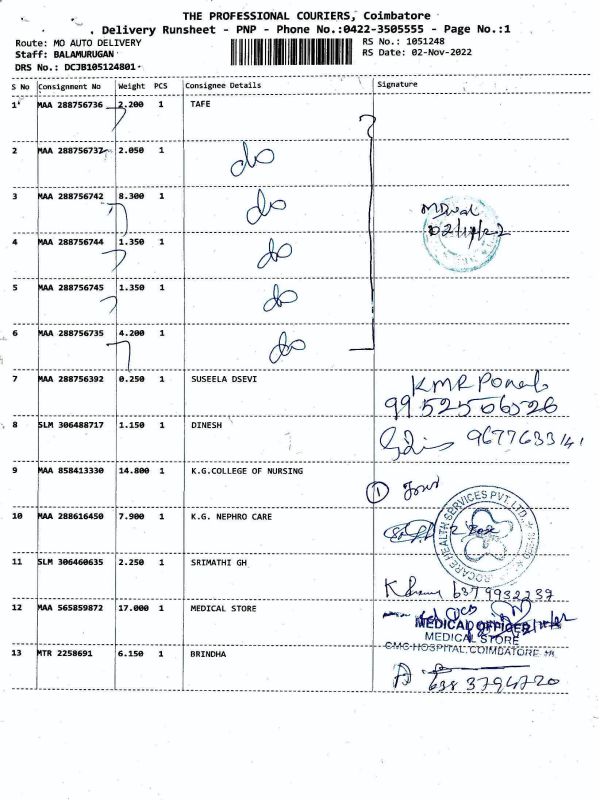 THE PROFESSIONAL COURIERS, Coimbatore
Delivery Runsheet - PNP - Phone No.:0422-3505555 - Page No.:1
Route: MO AUTO DELIVERY RS No.: 1051248
Staff: BALAMURUGAN RS Date: 02-Nov-2022
DRS No.: DCJB105124801
S No Consignment No Weight PCS Consignee Details Signature
1 MAA 288756736 2.200 1 TAFE
2 MAA 288756732 2.050 1 do
3 MAA 288756742 8.300 1 do
4 MAA 288756744 1.350 1 do
5 MAA 288756745 1.350 1 do
6 MAA 288756735 4.200 1 do
7 MAA 288756392 0.250 1 SUSEELA DSEVI
9952506526
8 SLM 306488717 1.150 1 DINESH 9677633141
9 MAA 858413330 14.800 1 K.G.COLLEGE OF NURSING
10 MAA 288616450 7.900 1 K.G. NEPHRO CARE
HEALTH SERVICES PVT. LTD.
11 SLM 306460635 2.250 1 SRIMATHI GH
6379932237
12 MAA 565859872 17.000 1 MEDICAL STORE
MEDICAL OFFICER
MEDICAL STORE
CMC HOSPITAL, COIMBATORE
13 MTR 2258691 6.150 1 BRINDHA
6383794720